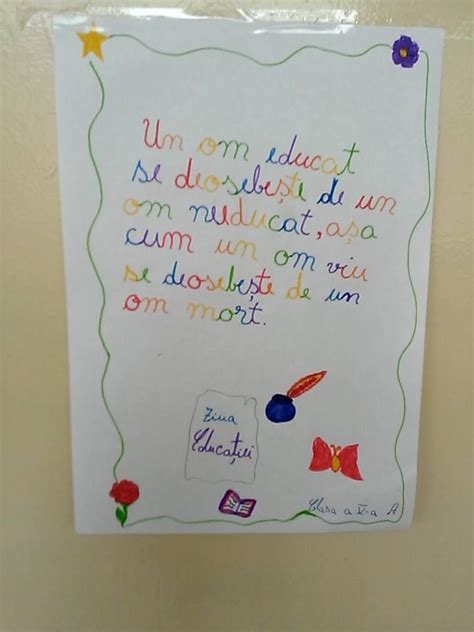 Un om educat
se deosebește de un
om neducat, așa
cum un om viu
se deosebește de un
om mort.
Ziua
Educației
Clasa a V-a A